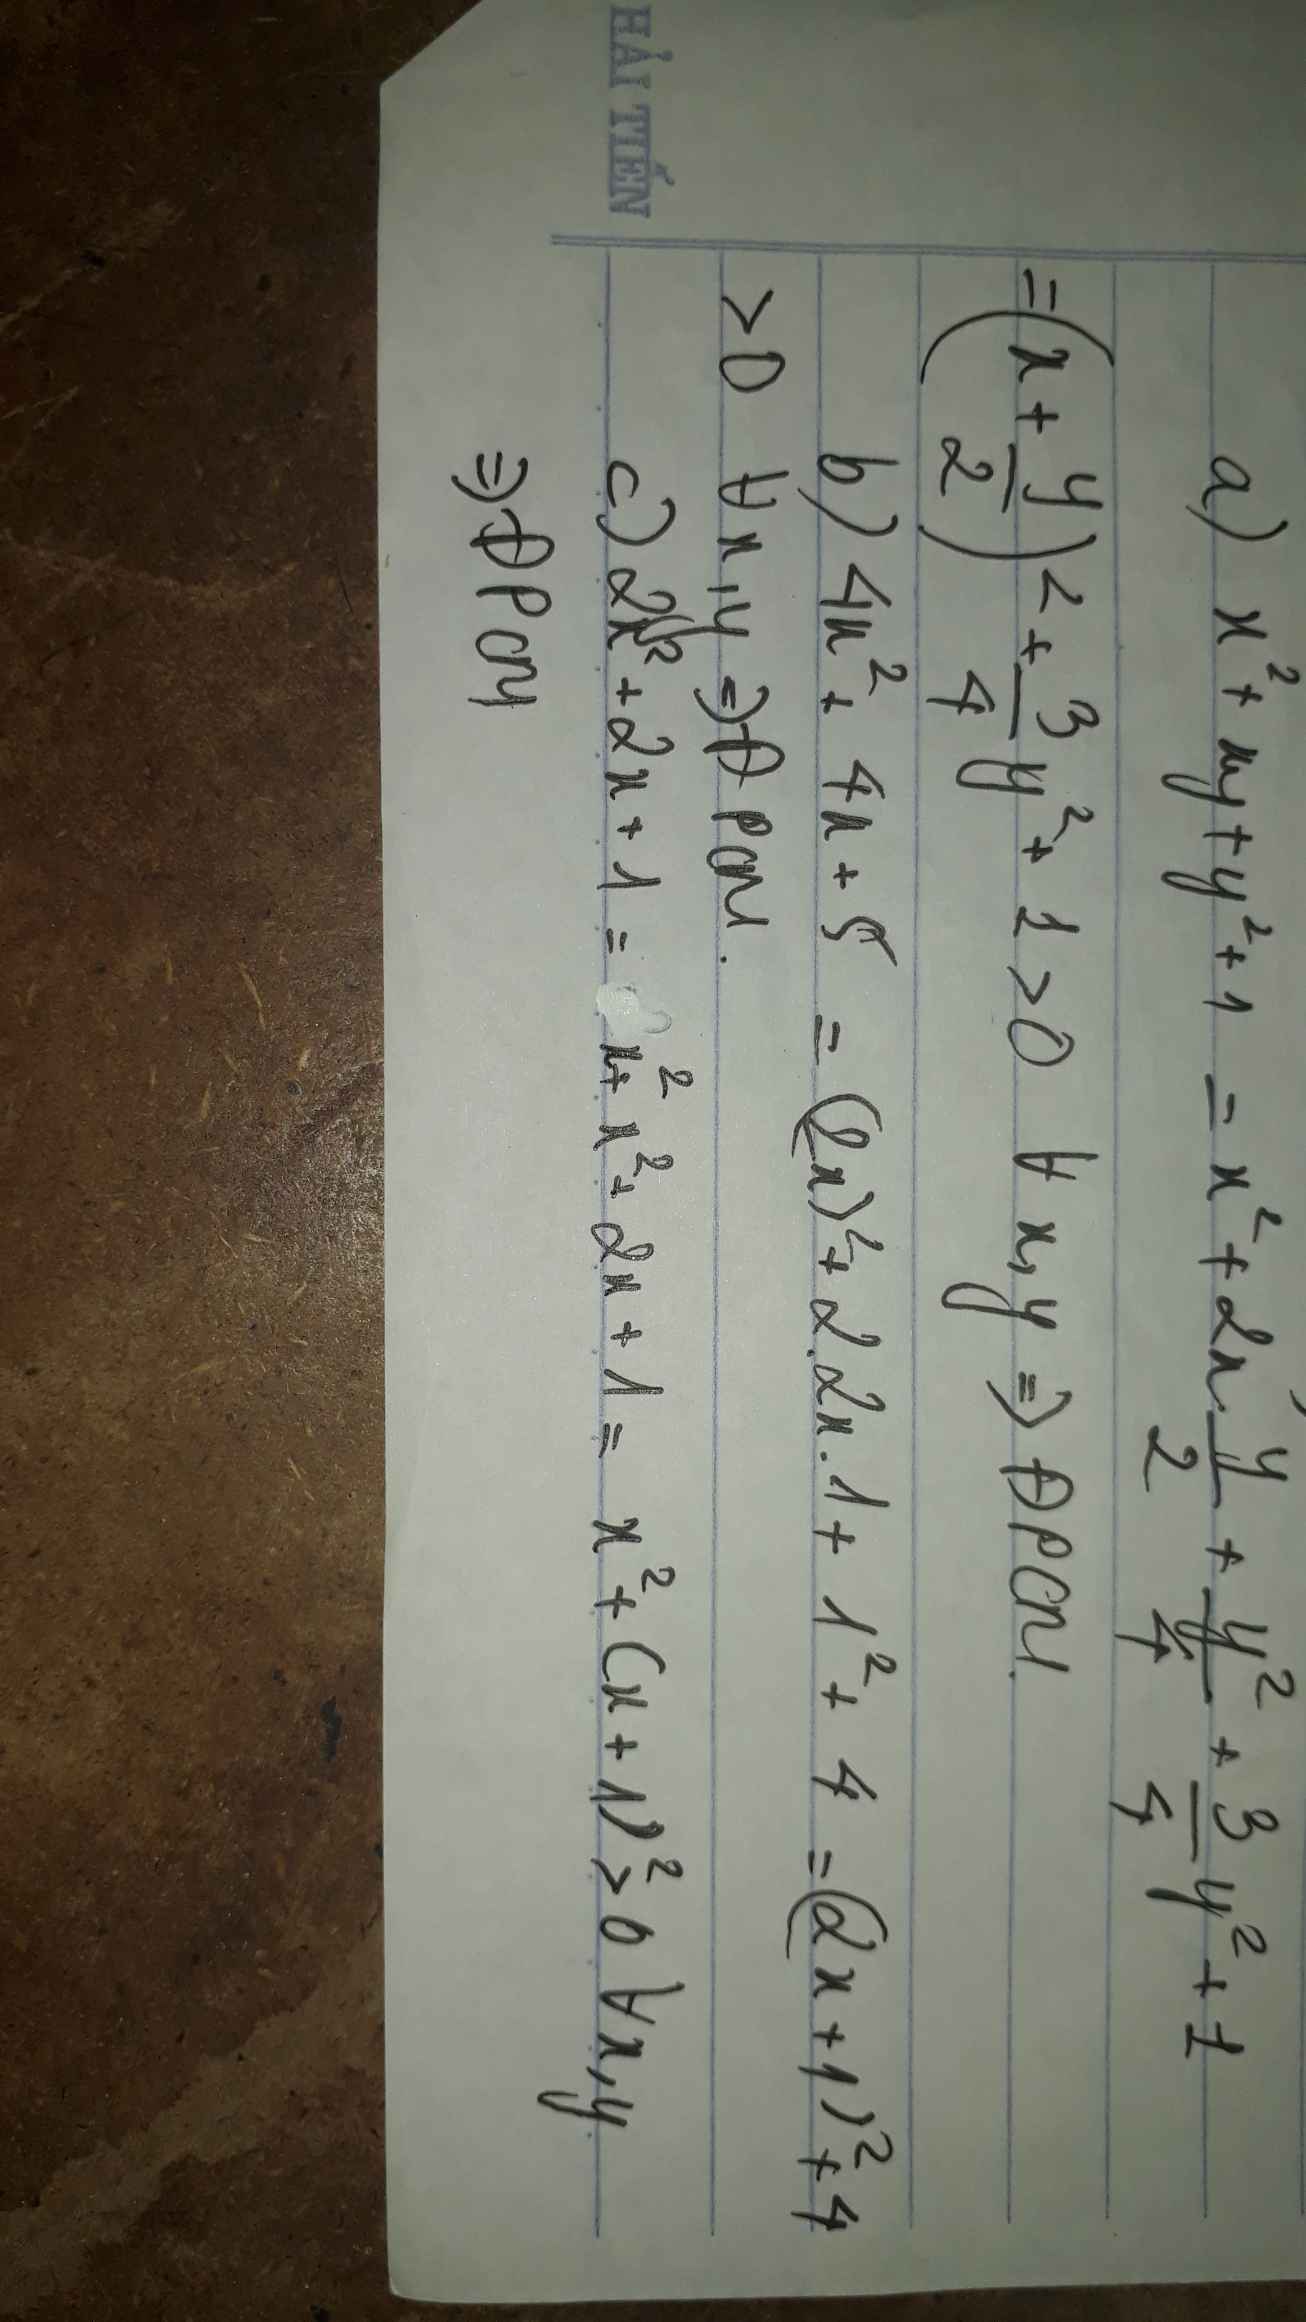 HẢI TIẾN
a) x² + xy + y² + 1 = x² + 2x.y/2 + y²/4 + 3/4 y² + 1
= (x + y/2)² + 3/4 y² + 1 > 0 ∀ x, y ⇒ ĐPCM.
b) 4x² + 4x + 5 = (2x)² + 2.2x.1 + 1² + 4 = (2x + 1)² + 4
> 0 ∀ x, y ⇒ ĐPCM.
c) 2x² + 2x + 1 = x² + x² + 2x + 1 = x² + (x + 1)² > 0 ∀ x, y
⇒ ĐPCM